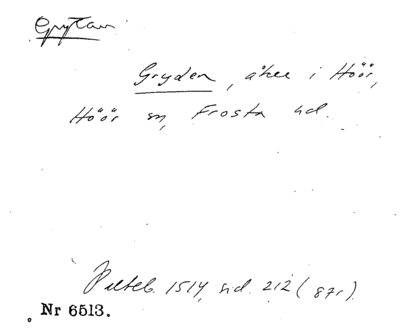 Grytan
Gryden, åker i Höör,
Höör sn, Frosta hd.
1514, sid. 212 (87r).
Nr 6513.